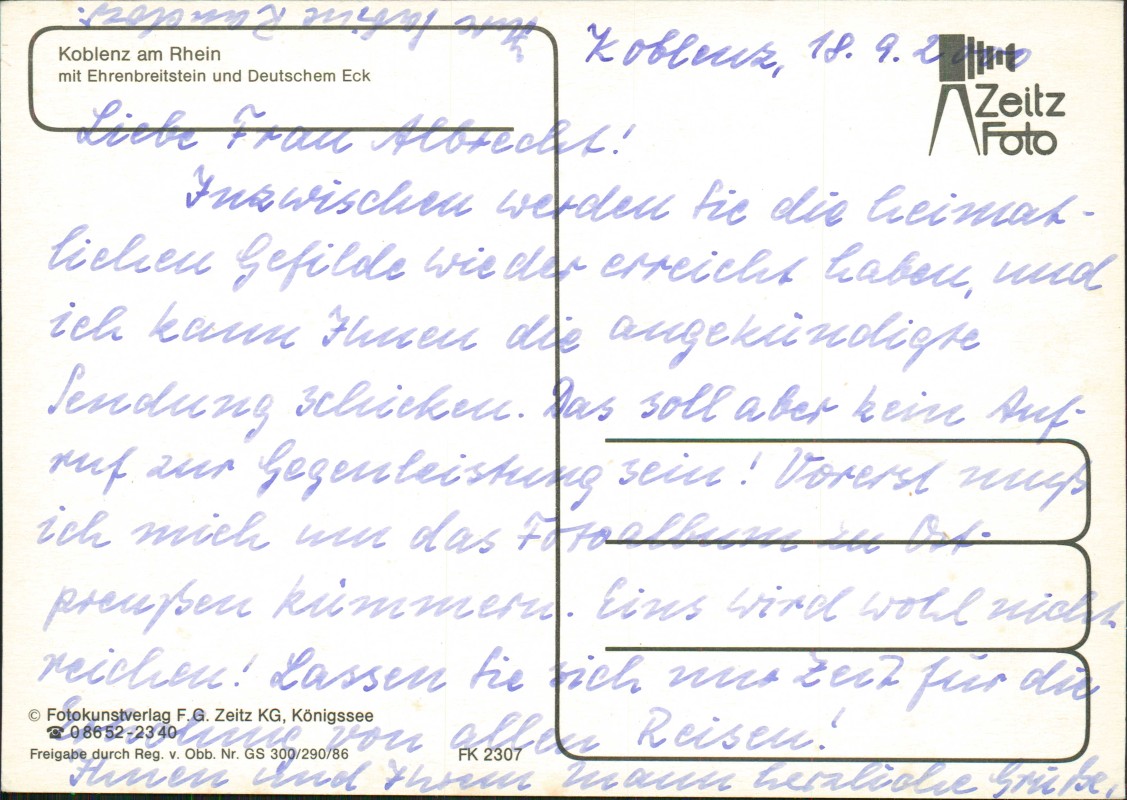 Koblenz am Rhein
mit Ehrenbreitstein und Deutschem Eck
Zeitz
Foto
Koblenz, 18. 9. 2000
Liebe Frau Albrecht!
Inzwischen werden Sie die heimat-
lichen Gefilde wieder erreicht haben, und
ich kann Ihnen die angekündigte
Sendung schicken. Das soll aber kein Auf-
ruf zur Gegenleistung sein! Vorerst muß
ich mich um das Fotoalbum zu Ost-
preußen kümmern. Eins wird wohl nicht
reichen! Lassen Sie sich nur Zeit für die
Erholung von allen Reisen!
Ihnen und Ihrem Mann herzliche Grüße,
Ihre
© Fotokunstverlag F.G. Zeitz KG, Königssee
☎ 08652-2340
Freigabe durch Reg. v. Obb. Nr. GS 300/290/86
FK 2307